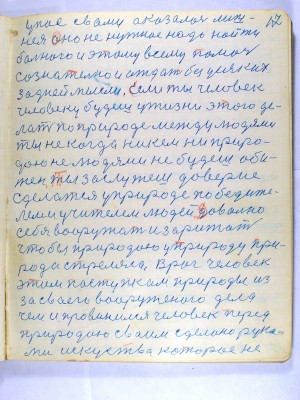 17
упое свами оказалая лиш-
нея оно не нужное надо найти
болного и этому всему помоч
сознателно и отдат без всяких
задней мысли, если ты человек
человеку будеш у жизни этого де-
лат по природе между людями
ты не когда никем ни приро-
дою не людями не будеш оби-
жен ты заслужеш доверие
сделатся у природе победите-
лем учителем людей доволно
себя вооружат и заряжат
чтобы природою у природу при-
рода стреляла. Враг человек
этим поступкам природы из
за сваего вооруженого дела
чем и провинился человек перед
природаю сваим сделано рука-
ми искуства которое не